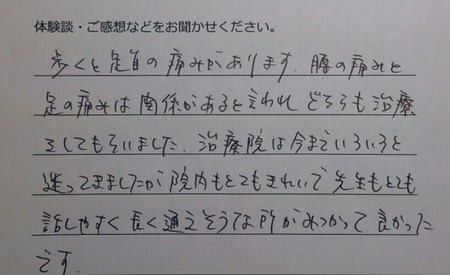 体験談・ご感想などをお聞かせください。
歩くと足首の痛みがあります。腰の痛みと
足の痛みは関係があると言われ どちらも治療
をしてもらいました。治療院は今までいろいろと
迷ってましたが 院内もとてもきれいで 先生もとても
話しやすく 長く通えそうな所がみつかって 良かった
です。